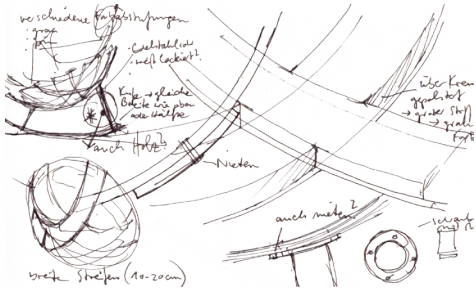 verschiedene Farbabstufungen
: grau
Edelstahl oder
weiß lackiert?
Kufe → gleiche
Breite wie oben
oder Hälfte
auch Holz?
Nieten
über Kreuz
→ grauer Stoff
→ grau
auch nieten?
breite Streifen (10-20cm)